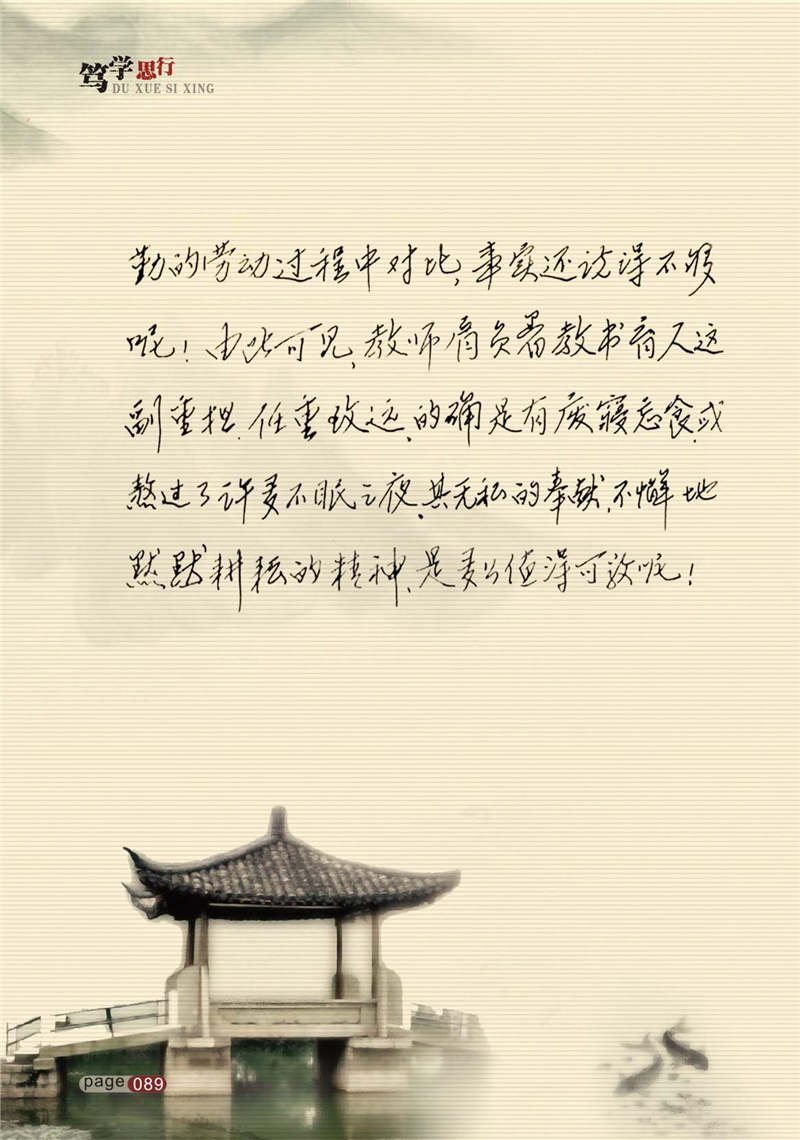 笃学思行
DU XUE SI XING
勤的劳动过程中对比,事实还说得不够
呢!由此可见,教师肩负着教书育人这
副重担.任重致远,的确是有废寝忘食,或
熬过了许多不眠之夜,其无私的奉献,不懈地
默默耕耘的精神,是多么值得可敬呢!
page 089